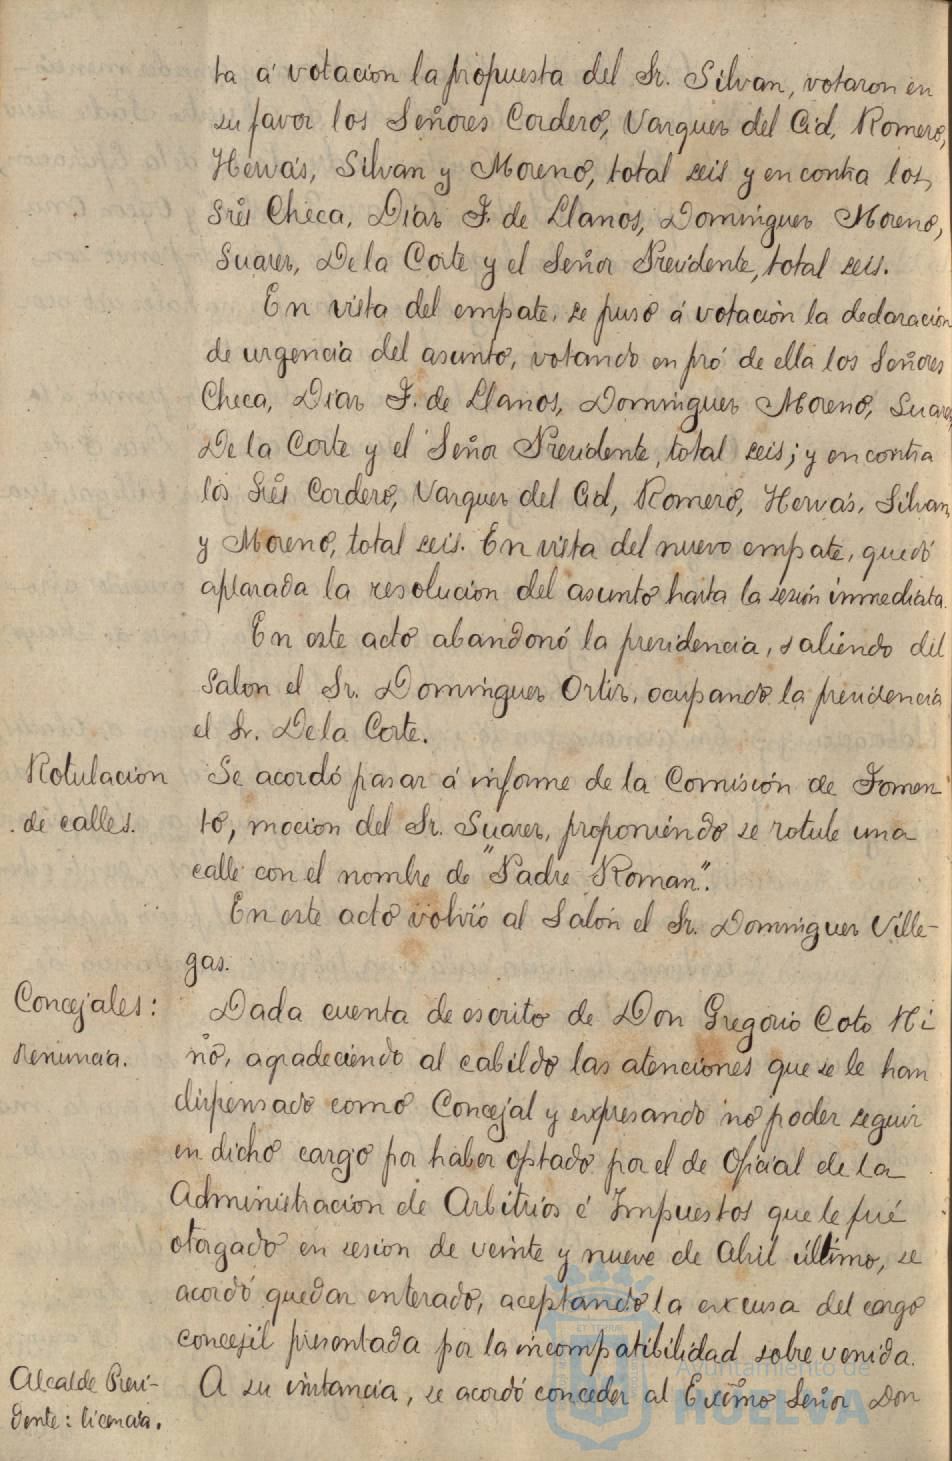 ta á votación la propuesta del Sr. Silvan, votaron en
su favor los Señores Cordero, Vazquez del Cid, Romero,
Hervás, Silvan y Moreno, total seis y en contra los
Sres Checa, Díaz F. de Llanos, Domínguez Moreno,
Suarez, De la Corte y el Señor Presidente, total seis.
En vista del empate, se puso á votación la declaración
de urgencia del asunto, votando en pró de ella los Señores
Checa, Díaz F. de Llanos, Domínguez Moreno, Suarez,
De la Corte y el Señor Presidente, total seis; y en contra
los Sres Cordero, Vazquez del Cid, Romero, Hervás, Silvan,
y Moreno, total seis. En vista del nuevo empate, quedó
aplazada la resolución del asunto hasta la sesión inmediata.
En este acto abandonó la presidencia, saliendo del
Salon el Sr. Domínguez Ortiz, ocupando la presidencia
el Sr. De la Corte.
Rotulacion
de calles.
Se acordó pasar á informe de la Comisión de Fomen-
to, mocion del Sr. Suarez, proponiendo se rotule una
calle con el nombre de "Padre Roman".
En este acto volvió al Salón el Sr. Domínguez Ville-
gas.
Concejales:
Renuncia.
Dada cuenta de escrito de Don Gregorio Coto Ni
ño, agradeciendo al cabildo las atenciones que se le han
dispensado como Concejal y expresando no poder seguir
en dicho cargo por haber optado por el de Oficial de la
Administracion de Arbitrios é Impuestos que le fué
otorgado en sesion de veinte y nueve de Abril último, se
acordó quedar enterado, aceptando la excusa del cargo
concejil presentada por la incompatibilidad sobrevenida.
Alcalde Presi-
dente: licencia.
A su instancia, se acordó conceder al Excmo Señor Don
Ayuntamiento de
HUELVA